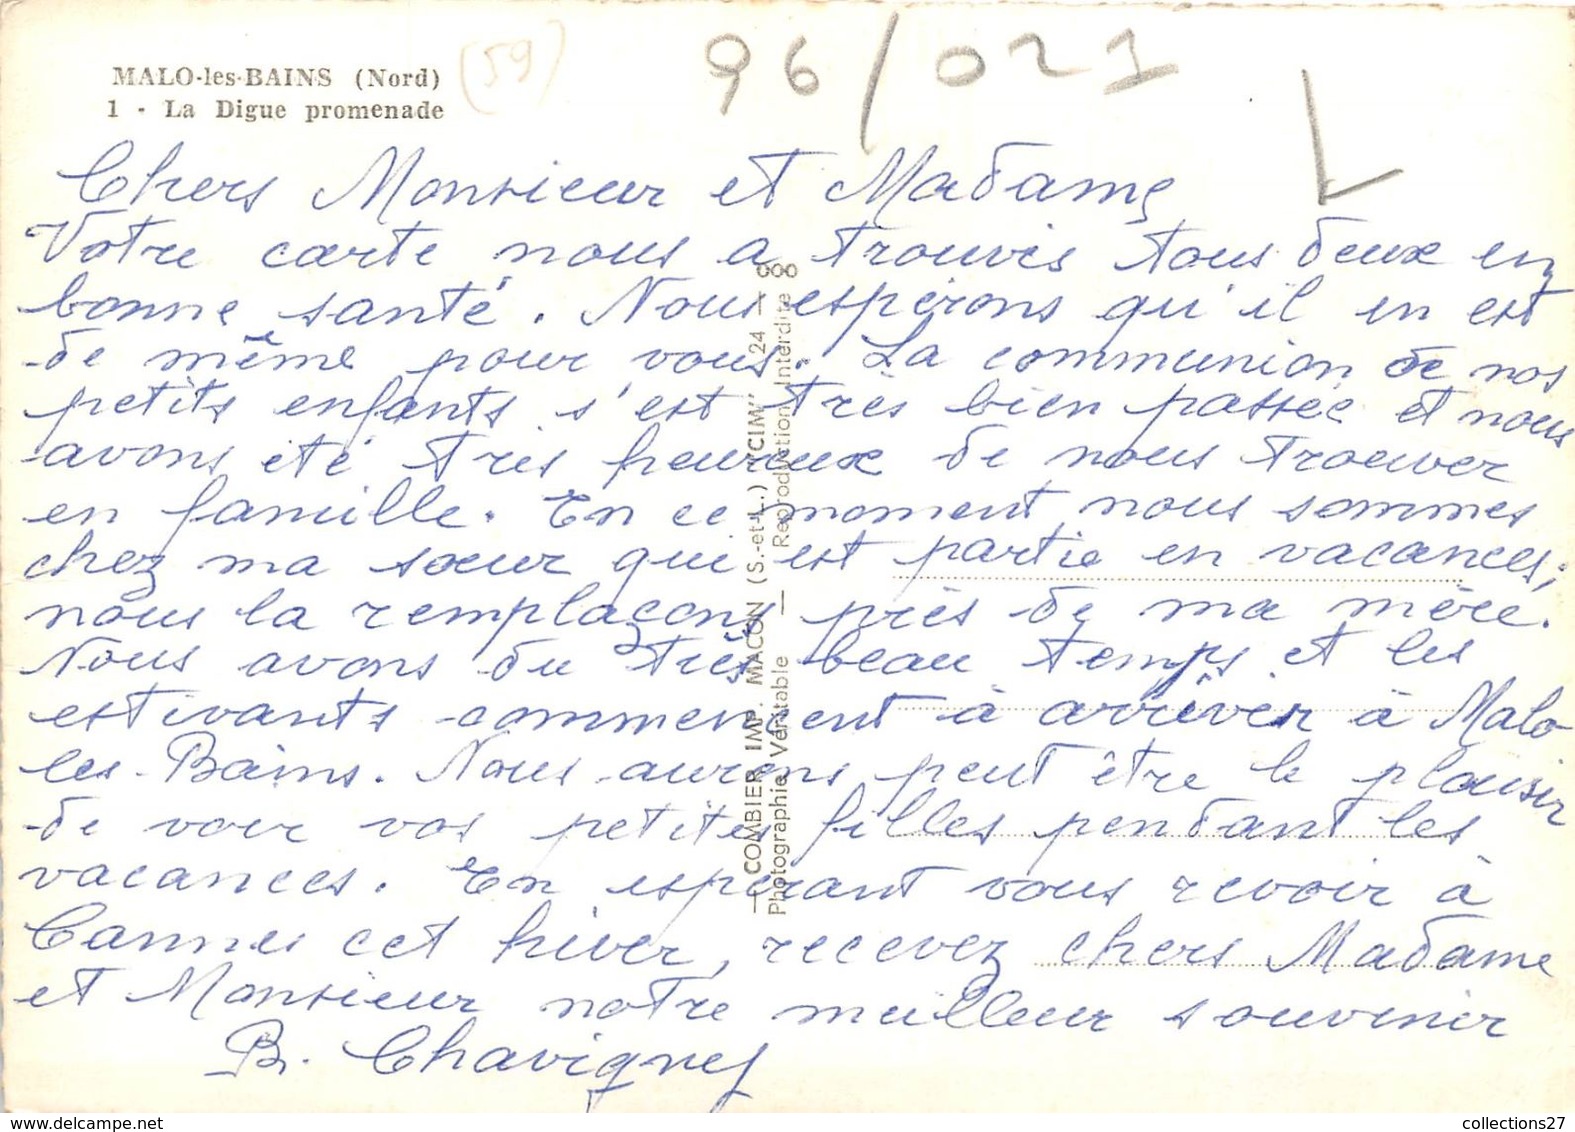 MALO-les-BAINS (Nord)
1 - La Digue promenade
(59)
96/021
L
Chers Monsieur et Madame
Votre carte nous a trouvés tous deux en
bonne santé. Nous espérons qu'il en est
de même pour vous. La communion de nos
petits enfants s'est très bien passée et nous
avons été très heureux de nous trouver
en famille. En ce moment nous sommes
chez ma sœur qui est partie en vacances,
nous la remplaçons près de ma mère.
Nous avons du très beau temps et les
estivants commencent à arriver à Malo
les-Bains. Nous aurons peut être le plaisir
de voir vos petites filles pendant les
vacances. En espérant vous revoir à
Cannes cet hiver, recevez chers Madame
et Monsieur notre meilleur souvenir
B. Chavignes
COMBIER IMP. MACON (S.-et-L.) "CIM" - 24 -
Photographie Véritable — Reproduction Interdite
collections27